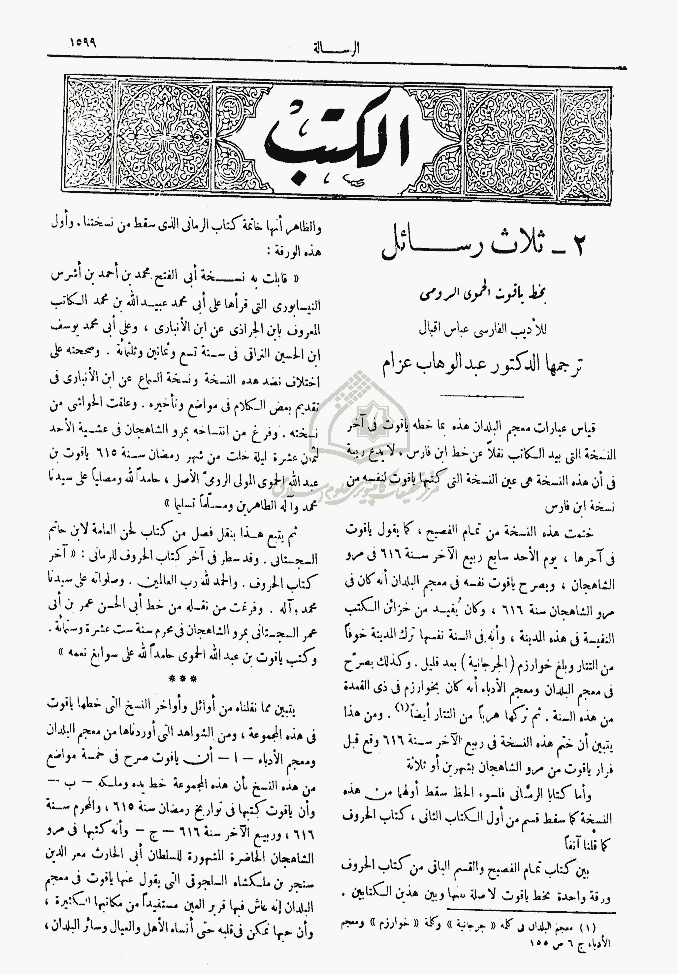 ١٥٩٩
الرسالة
الكتب
٢ - ثلاث رسائل
بخط ياقوت الحموى الرومى
للأديب الفارسى عباس اقبال
ترجمها الدكتور عبد الوهاب عزام
قياس عبارات معجم البلدان هذه بما خطه ياقوت فى آخر
النسخة التى بيد الكاتب نقلاً عن خط ابن فارس . لا يدع ريبة
فى أن هذه النسخة هى عين النسخة التى كتبها ياقوت لنفسه من
نسخة ابن فارس
ختمت هذه النسخة من تمام الفصيح ، كما يقول ياقوت
فى آخرها ، يوم الأحد سابع ربيع الآخر سنة ٦١٦ فى مرو
الشاهجان ، ويصرح ياقوت نفسه فى معجم البلدان أنه كان فى
مرو الشاهجان سنة ٦١٦ ، وكان يُفيد من خزائن الكتب
النفيسة فى هذه المدينة ، وأنه فى السنة نفسها ترك المدينة خوفاً
من التتار وبلغ خوارزم ( الجرجانية ) بعد قليل . وكذلك يصرّح
فى معجم البلدان ومعجم الأدباء أنه كان بخوارزم فى ذى القعدة
من هذه السنة . ثم تركها هرباً من التتار أيضاً(١) . ومن هذا
يتبين أن ختم هذه النسخة فى ربيع الآخر سنة ٦١٦ وقع قبل
فرار ياقوت من مرو الشاهجان بشهرين أو ثلاثة
وأما كتابا الرمّانى فلسوء الحظ سقط أولهما من هذه
النسخة كما سقط قسم من أول الكتاب الثانى ، كتاب الحروف
كما قلنا آنفاً
بين كتاب تمام الفصيح والقسم الباقى من كتاب الحروف
ورقة واحدة بخط ياقوت لا صلة بينها وبين هذين الكتابين .
(١) معجم البلدان فى كلمة « جرجانية » وكلمة « خوارزم » ومعجم
الأدباء ج ٦ ص ١٥٥
والظاهر أنها خاتمة كتاب الرمانى الذى سقط من نسختنا . وأول
هذه الورقة :
« قابلت به نسخة أبى الفتح محمد بن أحمد بن أشرس
النيسابورى التى قرأها على أبى محمد عبيد الله بن محمد الكاتب
المعروف بابن الجراذى عن ابن الأنبارى ، وعلى أبى محمد يوسف
ابن الحسين فى سنة تسع وثمانين وثلثمائة . وصححته على
اختلاف نضد هذه النسخة ونسخة السماع عن ابن الأنبارى فى
تقديم بعض الكلام فى مواضع وتأخيره . وعلقت الحواشى من
نسخته . وفرغ من انتساخه بمرو الشاهجان فى عشية الأحد
لثمان عشرة ليلة خلت من شهر رمضان سنة ٦١٥ ياقوت بن
عبد الله الحموى المولى الرومىّ الأصلى ، حامداً لله ومصلياً على سيدنا
محمد وآله الطاهرين ومسلماً تسليما »
ثم يتبع هذا بنقل فصل من كتاب لحن العامة لابن حاتم
السجستانى . وقد سطر فى آخر كتاب الحروف للرمانى : « آخر
كتاب الحروف . والحمد لله رب العالمين . وصلواته على سيدنا
محمد وآله . وفرغت من نقله من خط أبى الحسن عمر بن أبى
عمر السجستانى بمرو الشاهجان فى محرم سنة ست عشرة وستمائة .
وكتب ياقوت بن عبد الله الحموى حامداً لله على سوابغ نعمه »
***
يتبين مما نقلناه من أوائل وأواخر النسخ التى خطها ياقوت
فى هذه المجموعة ، ومن الشواهد التى أوردناها من معجم البلدان
ومعجم الأدباء — ا — أن ياقوت صرح فى خمسة مواضع
من هذه النسخ بأن هذه المجموعة خط يده وملكه — ب —
وأن ياقوت كتبها فى تواريخ رمضان سنة ٦١٥ ، والمحرم سنة
٦١٦ ، وربيع الآخر سنة ٦١٦ — ج — وأنه كتبها فى مرو
الشاهجان الحاضرة المشهورة للسلطان أبى الحارث معز الدين
سنجر بن ملكشاه السلجوقى التى يقول عنها ياقوت فى معجم
البلدان إنه عاش فيها قرير العين مستفيداً من مكاتبها الكثيرة ،
وأن حبها تمكن فى قلبه حتى أنساه الأهل والعيال وسائر البلدان ،